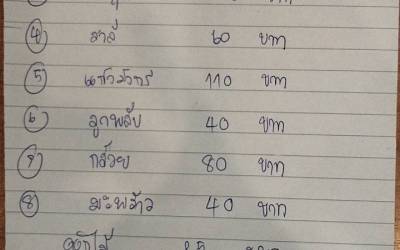 ④ สาลี่ 60 บาท
⑤ แก้วมังกร 110 บาท
⑥ ลูกพลับ 40 บาท
⑦ กล้วย 80 บาท
⑧ มะพร้าว 40 บาท